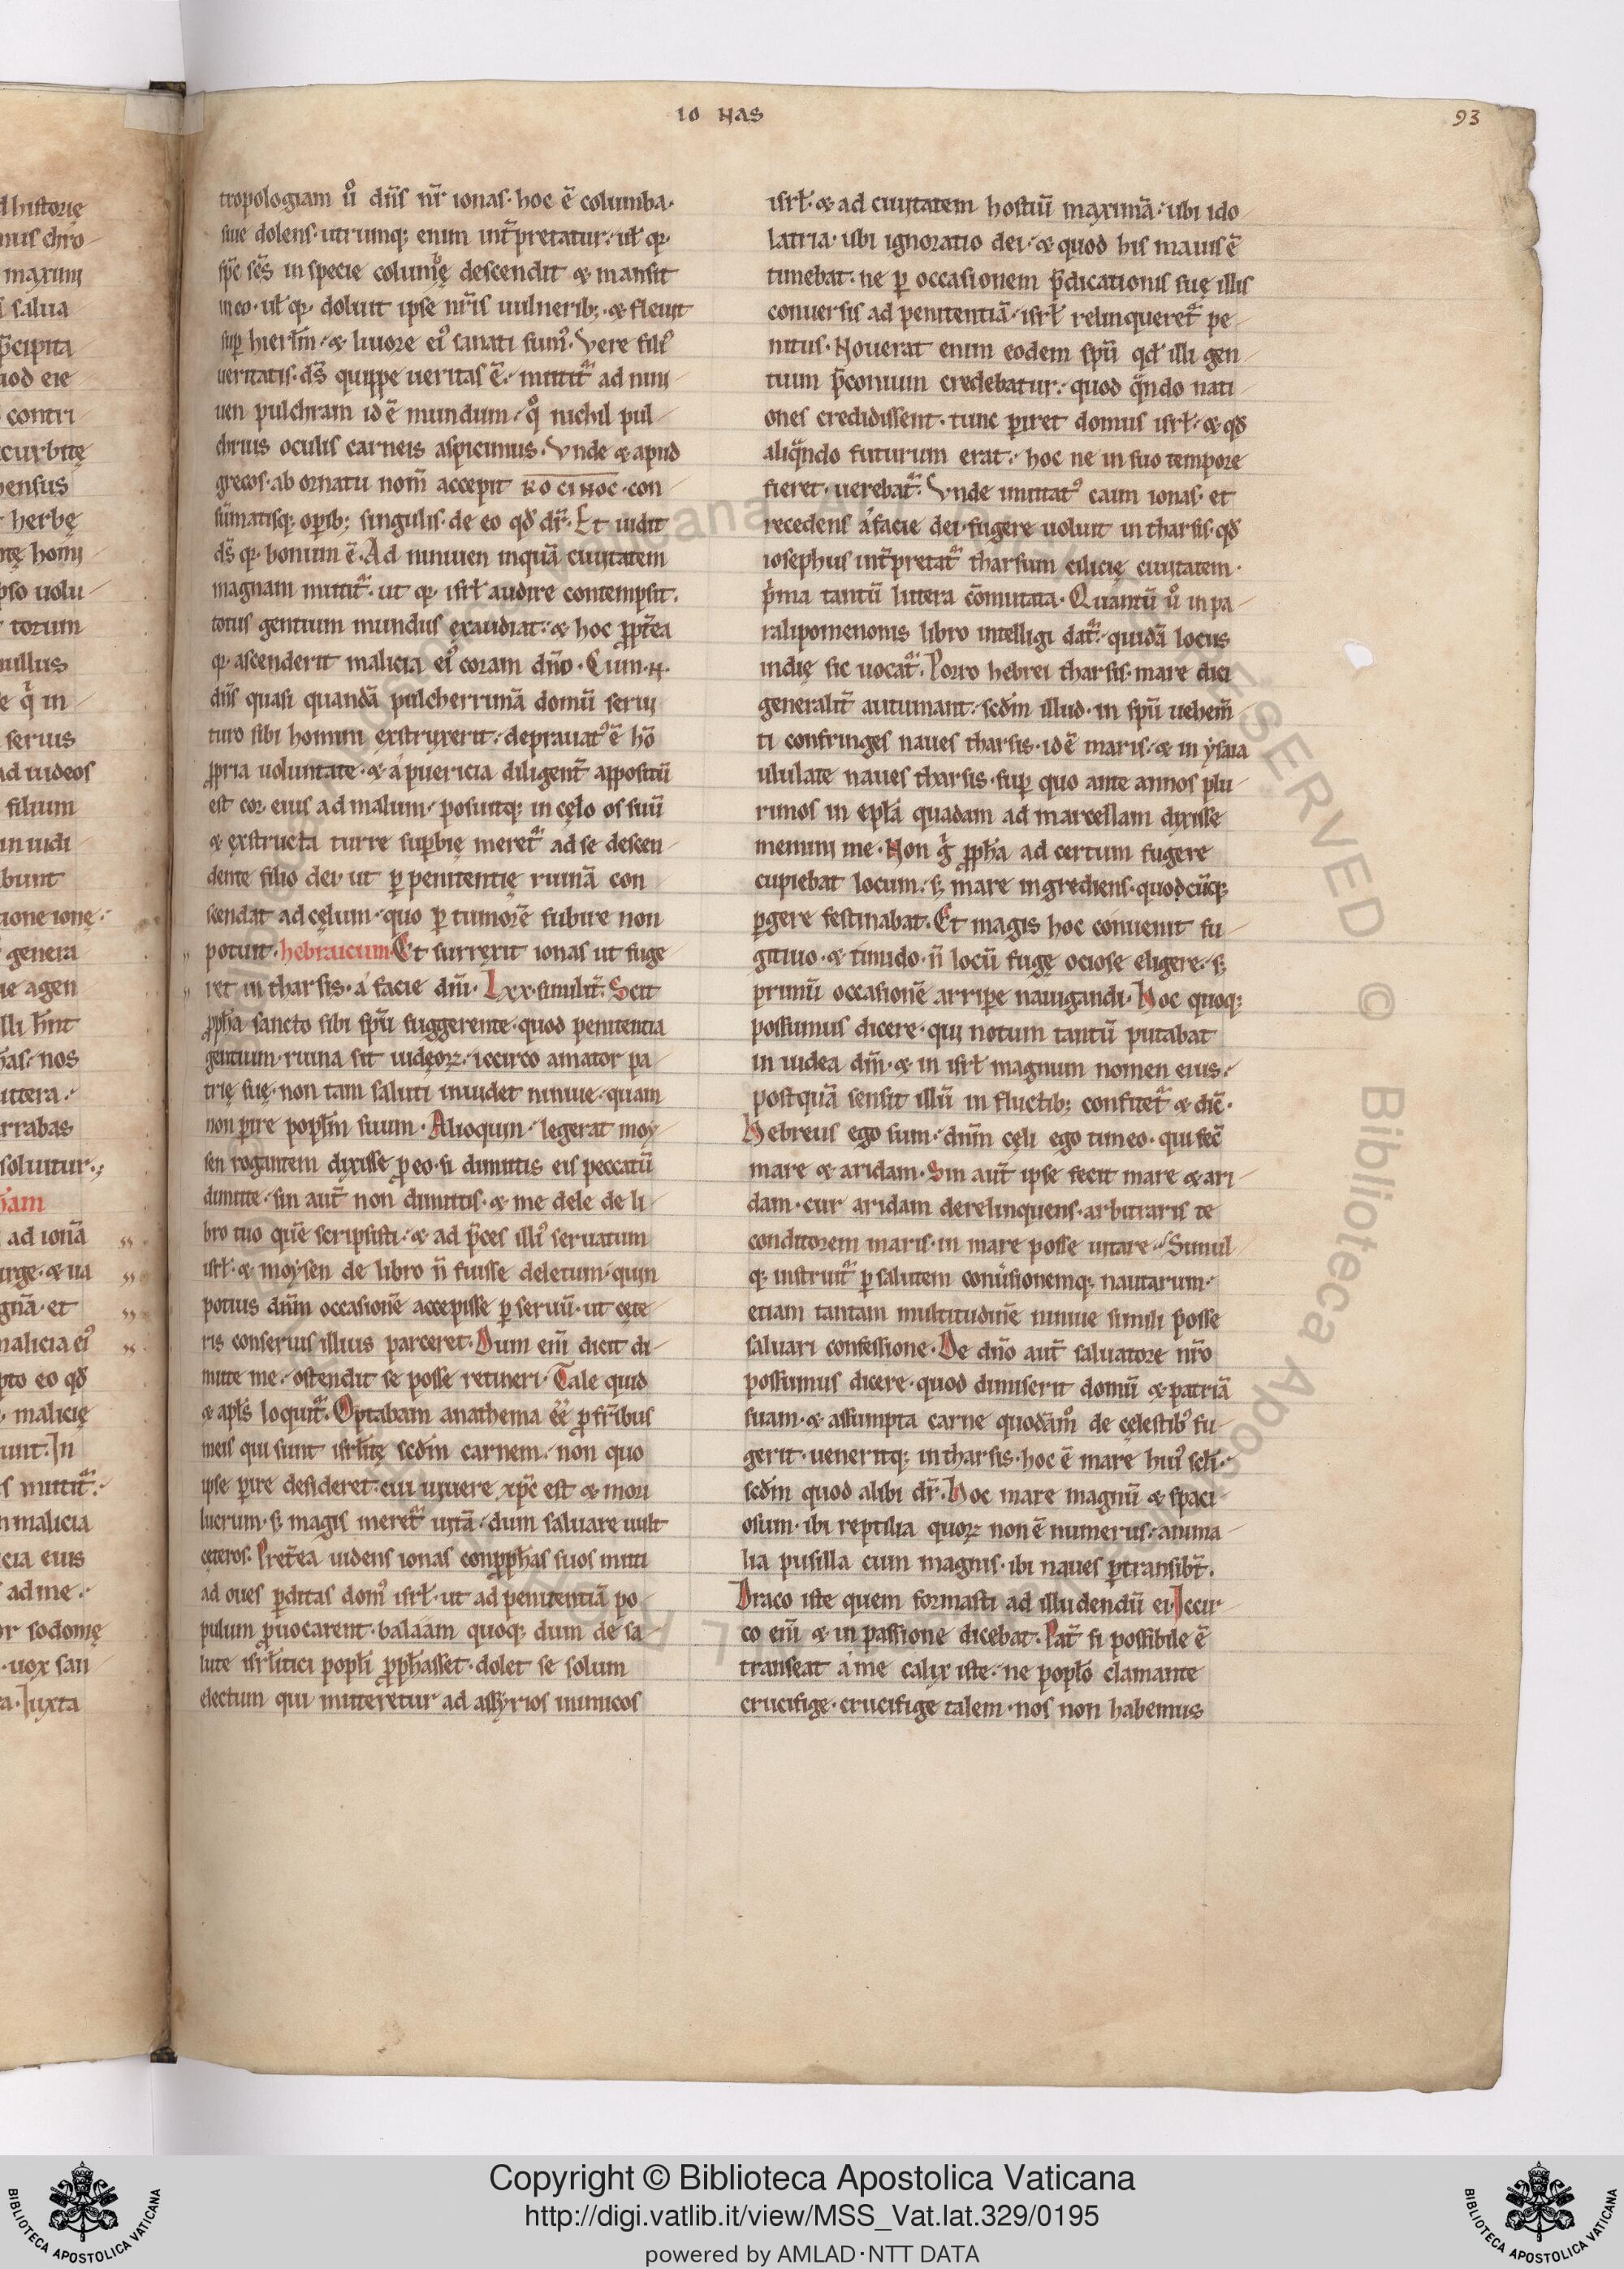 IO NAS
93
tropologiam ů dn̄s nr̄ ionas· hoc ē columba·
siue dolens· utrumq; enim int̄pretatur· ut̄ qꝛ
sp̄c sc̄s in specie columbę descendit & mansit
in eo· ut̄ qꝛ doluit ipse nr̄is uulnerib;· & fleuit
suꝑ hierl̄m· & liuore ei᾽ sanati sum᾽· Vere fili᾽
ueritatis· ds̄ quippe ueritas ē· mittit᷑ ad nini
uen pulchram id ē mundum· qͦ nichil pul
chrius oculis carneis aspicimus· Vnde & apud
grecos· ab ornatu nom̄ accepit KOCINOC· con
sūmatisq; oꝑib; singulis· de eo qd̄ dr̄· Et uidit
ds̄ qꝛ bonum ē· Ad niniuen inquā ciuitatem
magnam mittit᷑· ut qꝛ isrl̄ audire contempsit·
totus gentium mundus exaudiat· & hoc ꝓpt̄ea
qꝛ ascenderit malicia ei᾽ coram dn̄o· Cum·N·
dn̄s quasi quandā pulcherrimā domū serui
turo sibi homini exstruxerit· deprauat᾽ ē hō
ꝓpria uoluntate· & a puericia diligent̄ appositū
est cor eius ad malum· posuitq; in cęlo os suū
& exstructa turre suꝑbię meret᷑ ad se descen
dente filio dei· ut ꝑ penitentię ruinā con
scendat ad cęlum· quo ꝑ tumorē subire non
potuit· hebraicum· Et surrexit ionas ut fuge
ret in tharsis· a facie dn̄i· Lxx· similit̄· Scit
ꝓph̄a sancto sibi sp̄u suggerente· quod penitentia
gentium· ruina sit iudęoꝝ· iccirco amator pa
trię suę· non tam saluti inuidet niniue· quam
non ꝑire popl̄m suum· Alioquin· legerat moy
sen rogantem dixisse ꝓ eo· si dimittis eis peccatū
dimitte· sin aut̄ non dimittis· & me dele de li
bro tuo quē scripsisti· & ad p̄ces illi᾽ seruatum
isrl̄· & moysen de libro n̄ fuisse deletum· quin
potius dn̄m occasionē accepisse ꝑ seruū· ut cęte
ris conseruis illius parceret· Dum em̄ dicit di
mitte me· ostendit se posse retineri· Tale quid
& apl̄s loquit᷑· Optabam anathema ēē ꝓ fr̄ibus
meis qui sunt isrl̄itę scd̄m carnem· non quo
ipse ꝑire desideret· cui uiuere xp̄c est & mori
lucrum· s; magis meret᷑ uitā· dum saluare uult
cęteros· Pret̄ea uidens ionas conꝓph̄as suos mitti
ad oues ꝑditas dom᾽ isrl̄· ut ad penitentiā po
pulum ꝓuocarent· balaam quoq; dum de sa
lute isrl̄itici popl̄i ꝓph̄asset· dolet se solum
electum qui mitteretur ad assyrios inimicos
isrl̄· & ad ciuitatem hostiū maximā· ubi ido
latria· ubi ignoratio dei· & quod his maius ē
timebat· ne ꝑ occasionem p̄dicationis suę illis
conuersis ad penitentiā· isrl̄ relinqueret᷑ pe
nitus· Nouerat enim eodem sp̄u qd̄ illi gen
tium p̄conium credebatur· quod qͣndo nati
ones credidissent· tunc ꝑiret domus isrl̄· & qd̄
aliqͣndo futurum erat· hoc ne in suo tempore
fieret· uerebat᷑· Vnde imitat᾽ cain ionas· et
recedens a facie dei· fugere uoluit in tharsis· qd̄
iosephus int̄pretat᷑ tharsum cilicię ciuitatem·
p̍ma tantū littera cōmutata· Quantū ů in pa
ralipomenonis libro intelligi dat᷑· quidā locus
indię sic uocat᷑· Porro hebrei tharsis· mare dici
generalit̄ autumant· scd̄m illud· in sp̄u uehem̄
ti confringes naues tharsis· id ē maris· & in ysaia
ululate naues tharsis· suꝑ quo ante annos plu
rimos in epl̄a quadam ad marcellam dixisse
memini me· Non g̍ ꝓph̄a ad certum fugere
cupiebat locum· s; mare ingrediens· quocūq;
ꝑgere festinabat· Et magis hoc conuenit fu
gitiuo· & timido· n̄ locū fugę ociose eligere· s;
primū occasionē arriꝑe nauigandi· Hoc quoq;
possumus dicere· qui notum tantū putabat
in iudea dm̄· & in isrl̄ magnum nomen eius·
postquā sensit illū in fluctib; confitet᷑ & dic̄·
Hebreus ego sum· dn̄m cęli ego timeo· qui fec̄
mare & aridam· Sin aut̄ ipse fecit mare & ari
dam· cur aridam derelinquens· arbitraris te
conditorem maris· in mare posse uitare· Simul
q; instruit᷑ ꝑ salutem conūsionemq; nautarum·
etiam tantam multitudinē niniue simili posse
saluari confessione· De dn̄o aut̄ saluatore nr̄o
possumus dicere· quod dimiserit domū & patriā
suam· & assumpta carne quodāmͦ de cęlestib᾽ fu
gerit· ueneritq; in tharsis· hoc ē mare hui᾽ scl̄i·
scd̄m quod alibi dr̄· Hoc mare magnū & spaci
osum· ibi reptilia quoꝝ non ē numerus· anima
lia pusilla cum magnis· ibi naues ꝑtransibt̄·
Draco iste quem formasti ad illudendū ei· Iccir
co em̄ & in passione dicebat· Pat̄ si possibile ē
transeat a me calix iste· ne popl̄o clamante
crucifige· crucifige talem· nos non habemus
Copyright © Biblioteca Apostolica Vaticana
http://digi.vatlib.it/view/MSS_Vat.lat.329/0195
powered by AMLAD·NTT DATA
BIBLIOTECA APOSTOLICA VATICANA
BIBLIOTECA APOSTOLICA VATICANA